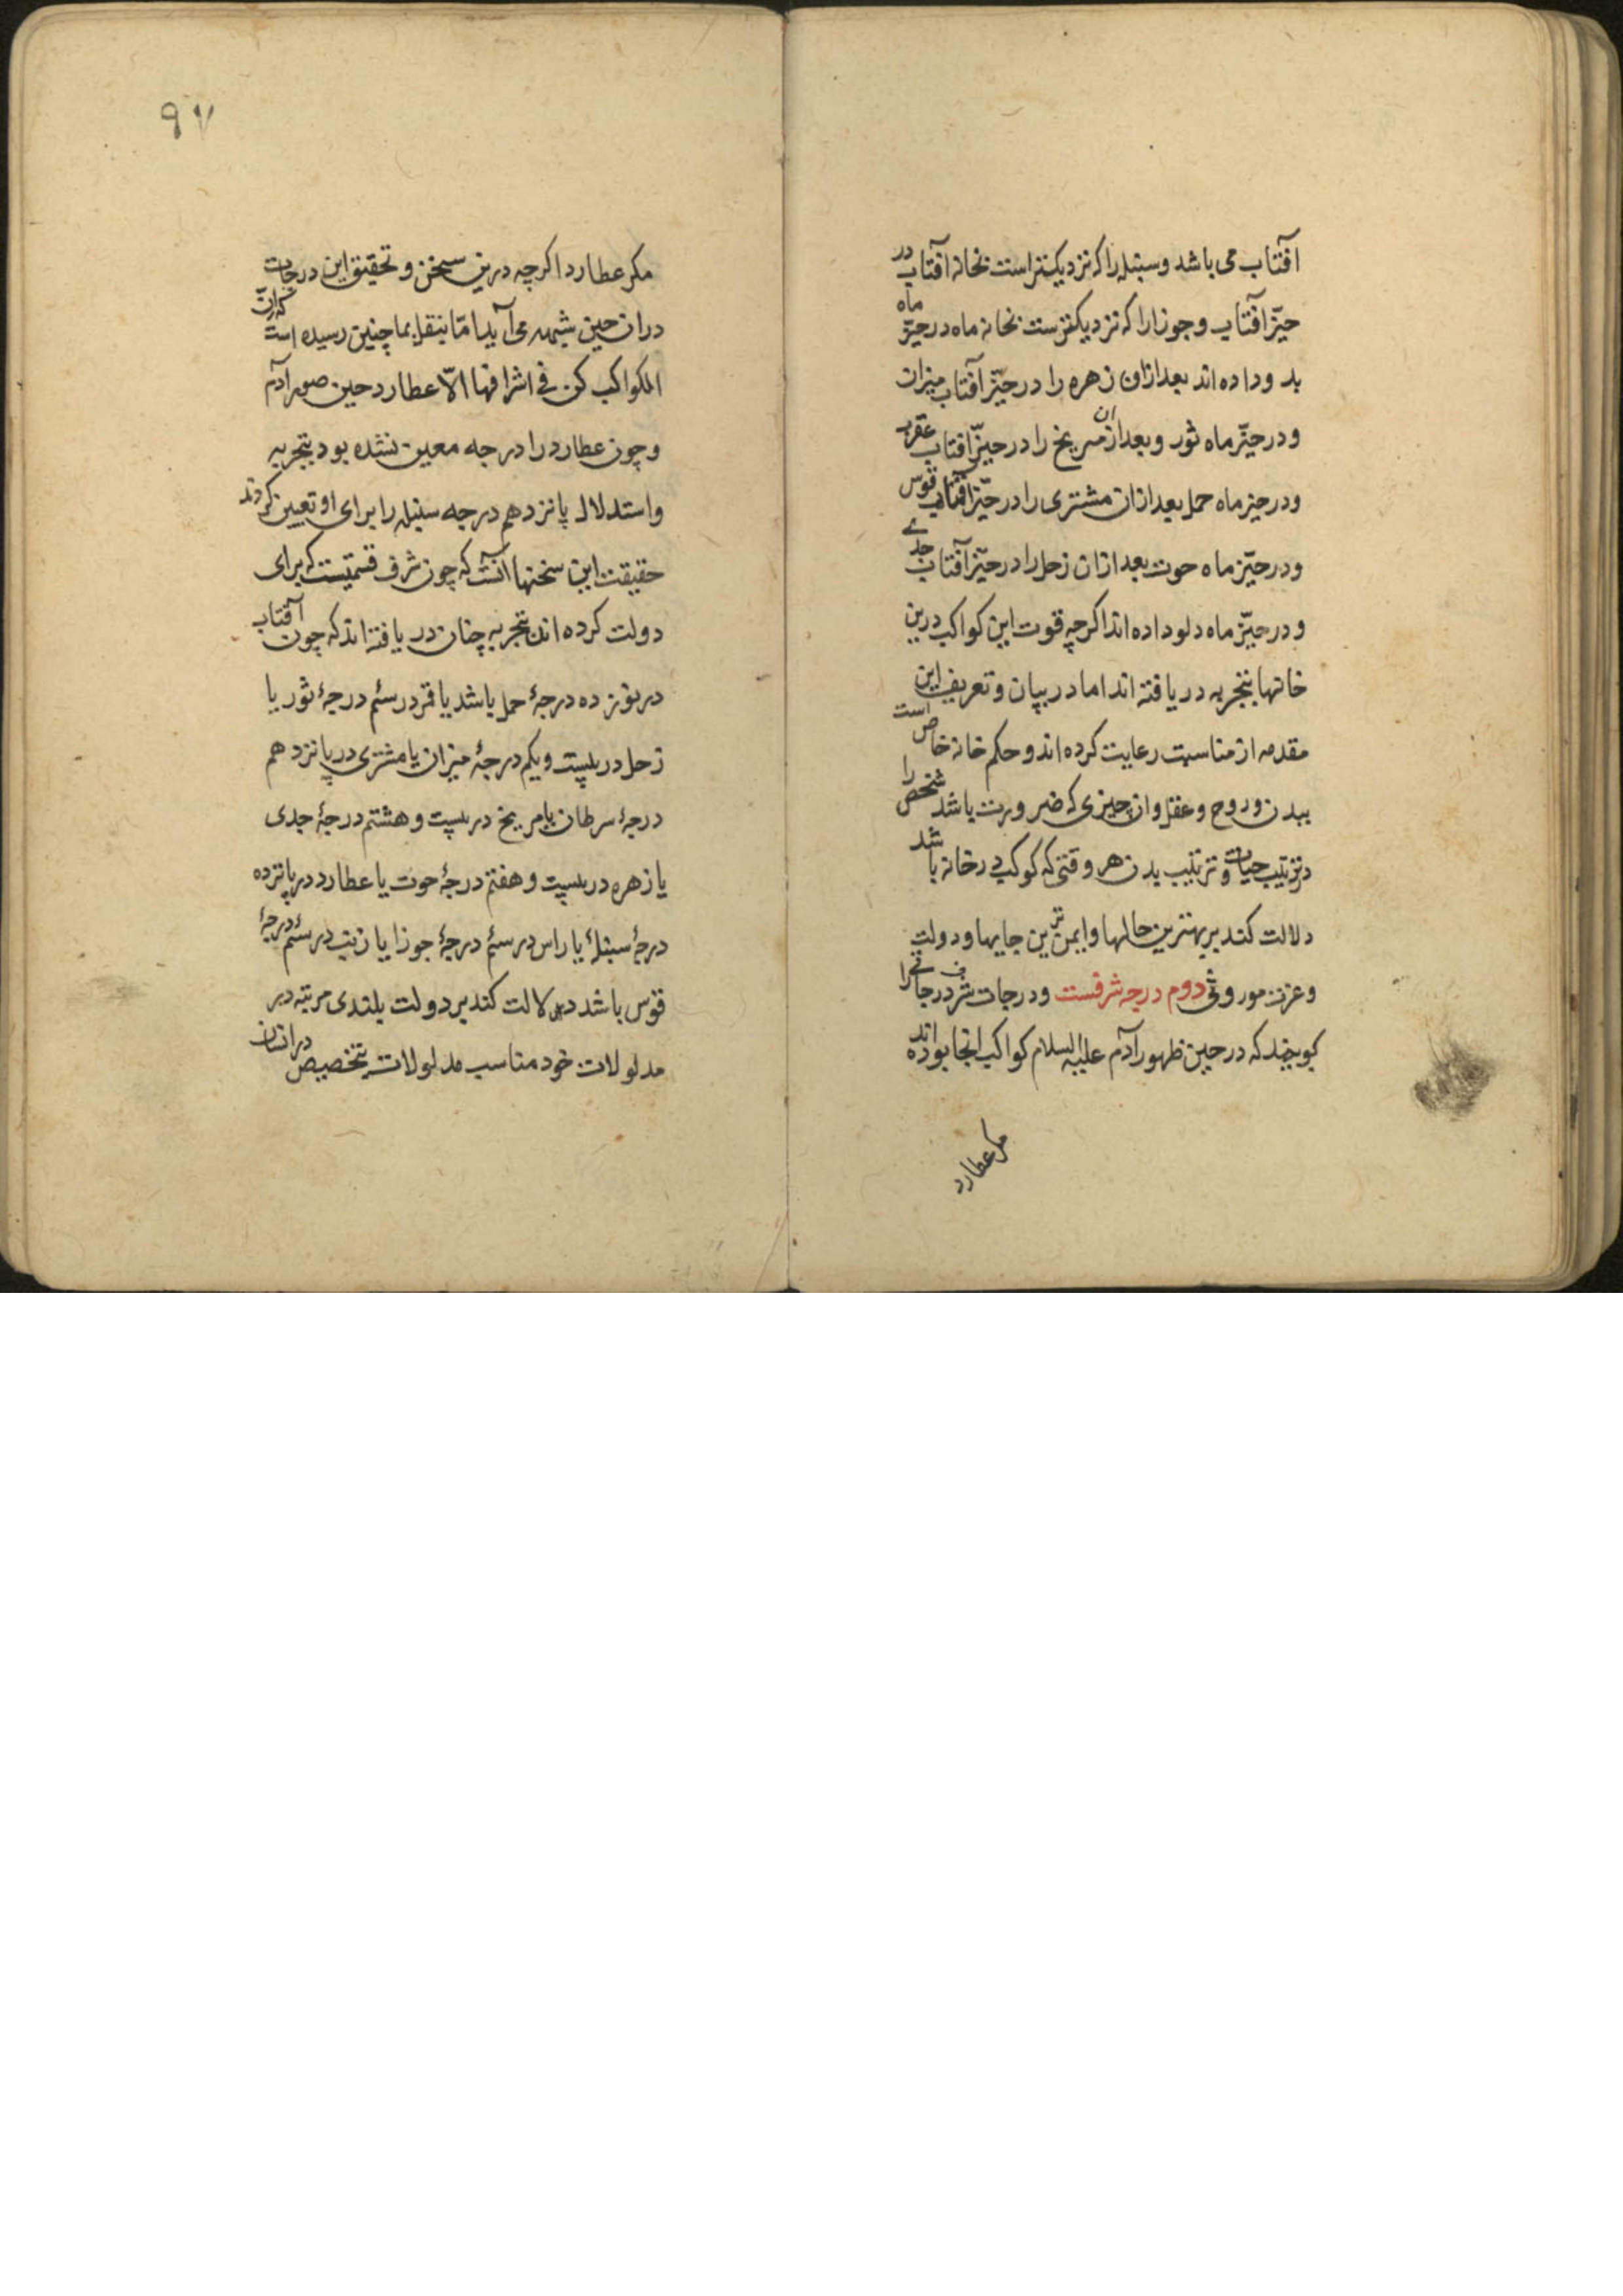 افتاب می باشد و سنبله را که نزدیکتر است بخانه آفتاب در
حیّز آفتاب و جوزا را که نزدیکترست بخانه ماه در حیّز ماه
بدو داده اند بعد ازان زهره را در حیّز آفتاب میزان
و در حیّز ماه ثور و بعد ازان مریخ را در حیّز افتاب عقرب
و در حیز ماه حمل بعد ازان مشتری را در حیّز افتاب قوس
و در حیّز ماه حوت بعد ازان زحل را در حیّز آفتاب جدی
و در حیّز ماه دلو داده اند اکرچه قوت این کواکب درین
خانها بتجربه دریافته اند اما در بیان و تعریف این
مقدمه از مناسبت رعایت کرده اند و حکم خانه خاص است
ببدن و روح و عقل وان چیزی که ضرورت باشد شخص را
در ترتیب حیات و ترتیب بدن هر وقتی که کوکب در خانه باشد
دلالت کند بر بهترین حالها و ایمن ترین جایها و دولت
و عزت موروثی دوم درجه شرفست و درجات شرف درجاتی را
کویند که در حین ظهور آدم علیه السلام کواکب انجا بوده اند
مکر عطارد
٩٧
مکر عطارد اکرچه درین سخن و تحقیق این درجات
دران حین شبهه می آید اما بنقل بما چنین رسیده است که انّ
الکواکب کن فی اشرافها الّا عطارد حین صور آدم
و چون عطارد را درجه معین نشده بود بتجربه
و استدلال پانزدهم درجه سنبله را برای او تعیین کردند
حقیقت این سخنها آنست که چون شرف قسمتیست که برای
دولت کرده اند بتجربه چنان دریافته اند که چون آفتاب
در نوزده درجهٔ حمل باشد یا قمر در سئم درجهٔ ثور یا
زحل در بیست و یکم درجهٔ میزان یا مشتری در پانزدهم
درجهٔ سرطان یا مریخ در بیست و هشتم درجهٔ جدی
یا زهره در بیست و هفتم درجهٔ حوت یا عطارد در پانزده
درجهٔ سنبلهٔ یا راس در سئم درجهٔ جوزا یا زنب در سئم درجهٔ
قوس باشد دلالت کند بر دولت بلندی مرتبه در
مدلولات خود مناسب مدلولات بتخصیص در انسان